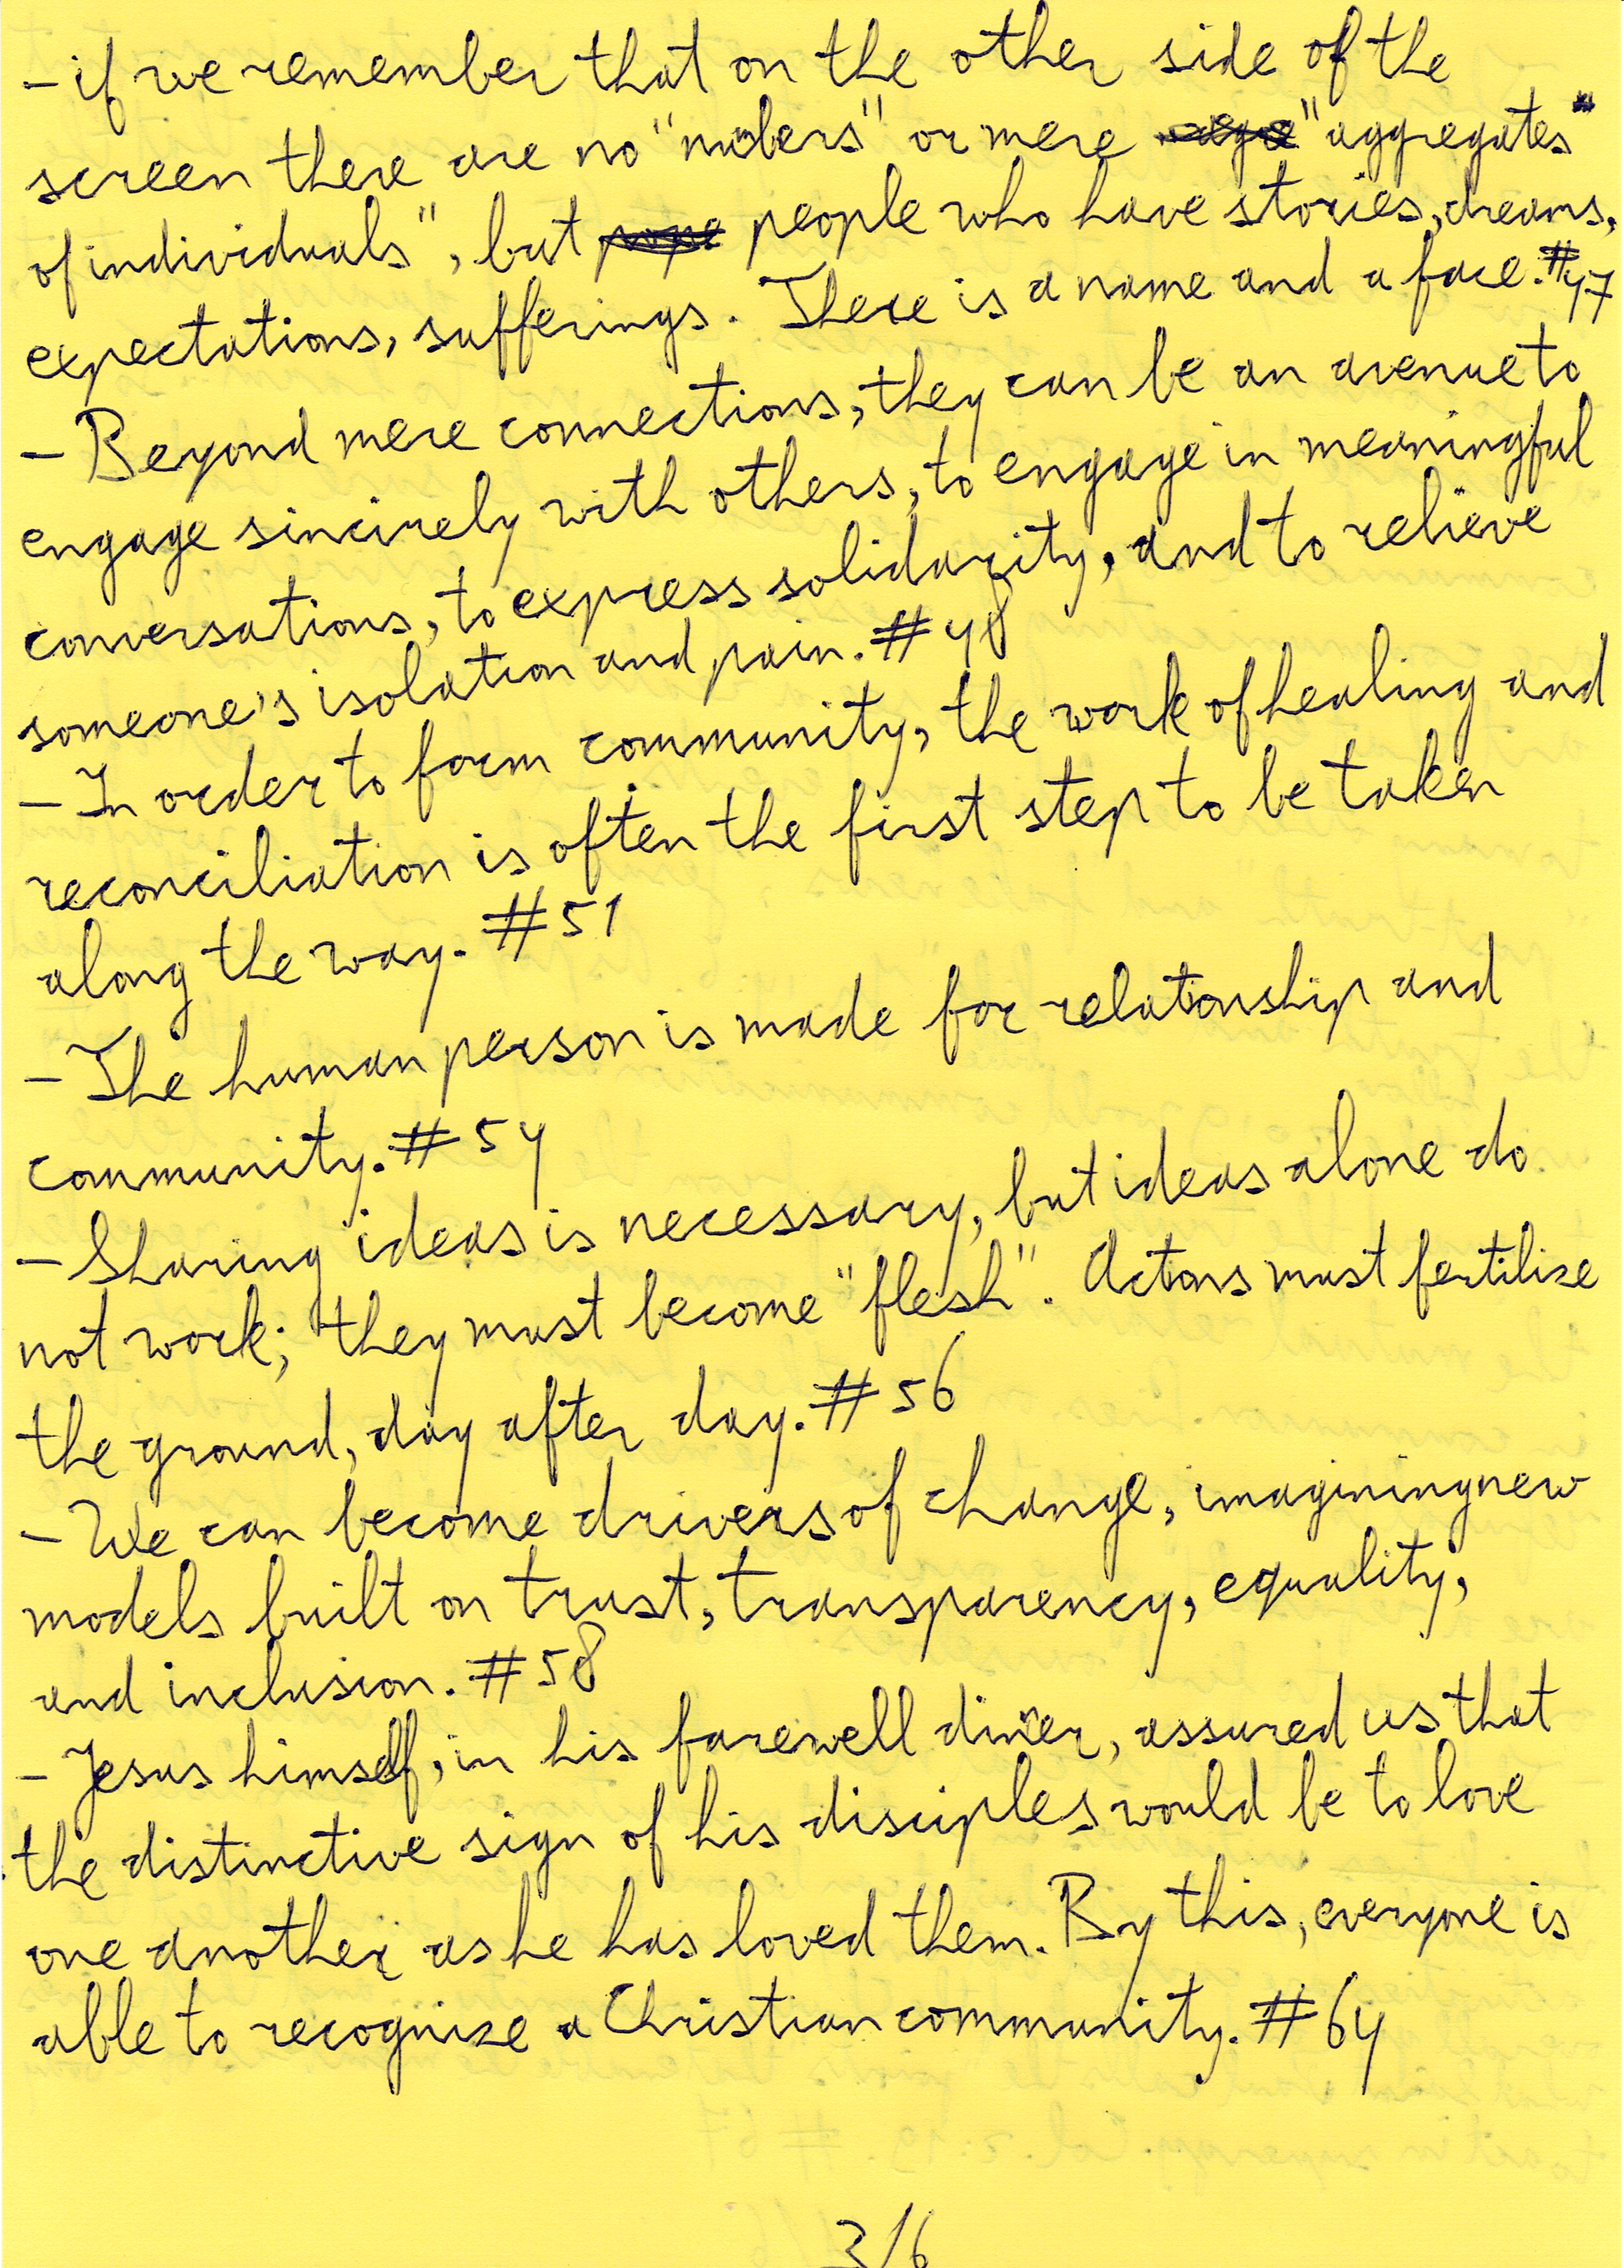 - if we remember that on the other side of the
screen there are no "nubers" or mere "aggregates"
of individuals", but people who have stories, dreams,
expectations, sufferings. There is a name and a face. #47
- Beyond mere connections, they can be an avenue to
engage sincirely with others, to engage in meaningful
conversations, to express solidarity, and to relieve
someone's isolation and pain. #48
- In order to form community, the work of healing and
reconciliation is often the first step to be taken
along the way. #51
- The human person is made for relationship and
community. #54
- Sharing ideas is necessary, but ideas alone do
not work; they must become "flesh". Actions must fertilize
the ground, day after day. #56
- We can become drivers of change, imagining new
models built on trust, transparency, equality,
and inclusion. #58
- Jesus himself, in his farewell diner, assured us that
the distinctive sign of his disciples would be to love
one another as he has loved them. By this, everyone is
able to recognize a Christian community. #64
3/6